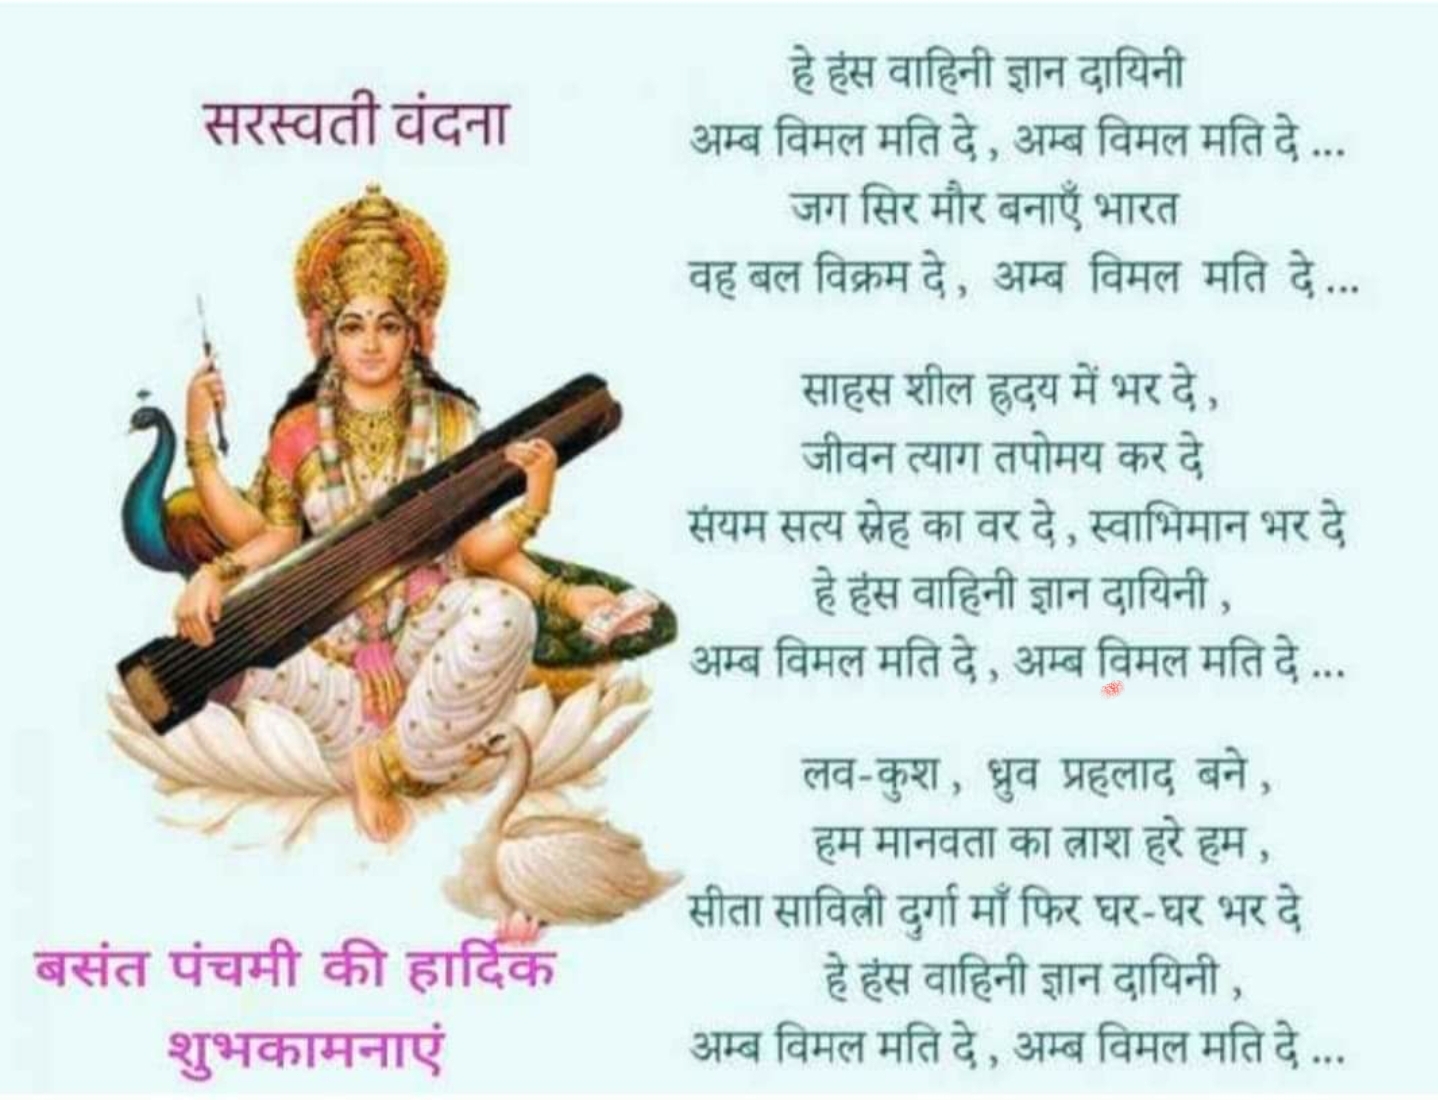 सरस्वती वंदना
हे हंस वाहिनी ज्ञान दायिनी
अम्ब विमल मति दे , अम्ब विमल मति दे ...
जग सिर मौर बनाएँ भारत
वह बल विक्रम दे , अम्ब विमल मति दे ...
साहस शील ह्रदय में भर दे ,
जीवन त्याग तपोमय कर दे
संयम सत्य स्नेह का वर दे , स्वाभिमान भर दे
हे हंस वाहिनी ज्ञान दायिनी ,
अम्ब विमल मति दे , अम्ब विमल मति दे ...
लव-कुश , ध्रुव प्रहलाद बने ,
हम मानवता का त्राश हरे हम ,
सीता सावित्री दुर्गा माँ फिर घर-घर भर दे
हे हंस वाहिनी ज्ञान दायिनी ,
अम्ब विमल मति दे , अम्ब विमल मति दे ...
बसंत पंचमी की हार्दिक
शुभकामनाएं